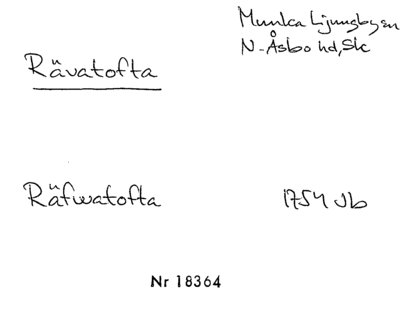 Munka Ljungbyen
N-Åsbo hd, Sk
Rävatofta
Räfwatofta 1754 Jb
Nr 18364